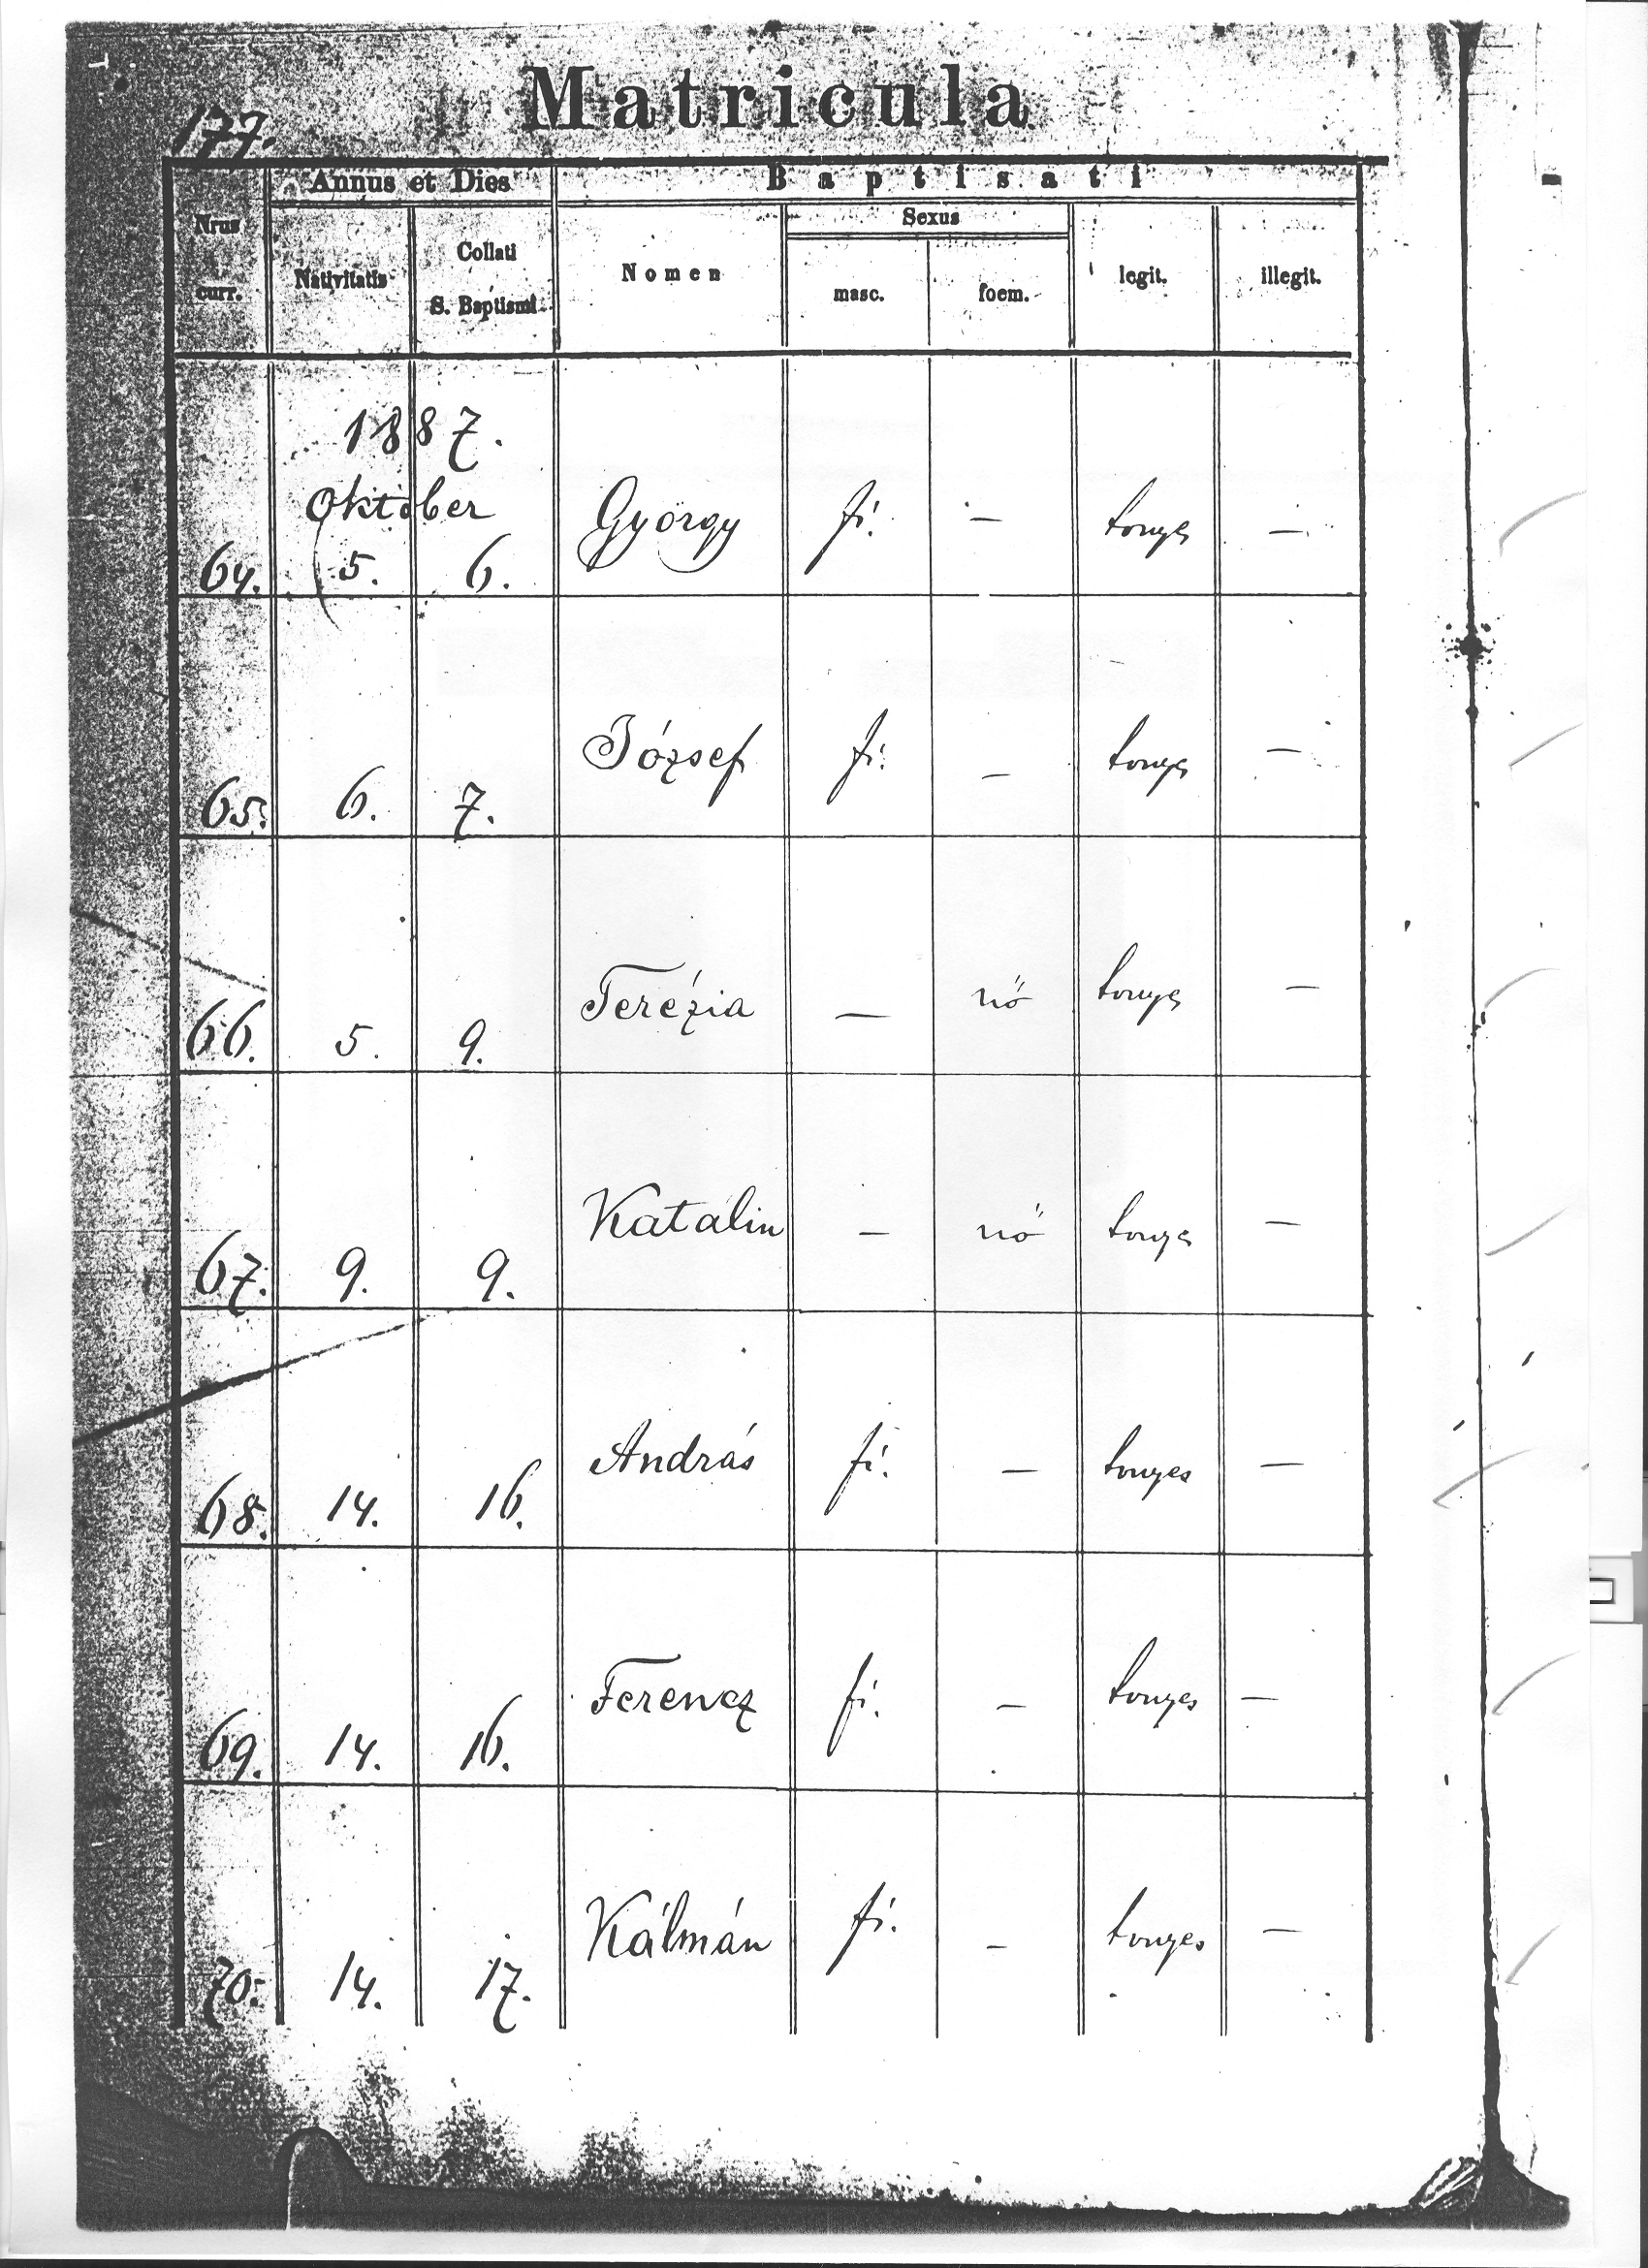 Matricula
177.
Nrus curr. Annus et Dies Baptisati
Nativitatis Collati S. Baptismi Nomen Sexus legit. illegit.
masc. foem.
1887.
Október
64. 5. 6. György fi. — tvnyes —
65. 6. 7. József fi. — tvnyes —
66. 5. 9. Terézia — nő tvnyes —
67. 9. 9. Katalin — nő tvnyes —
68. 14. 16. András fi. — tvnyes —
69. 14. 16. Ferencz fi. — tvnyes —
70. 14. 17. Kálmán fi. — tvnyes —